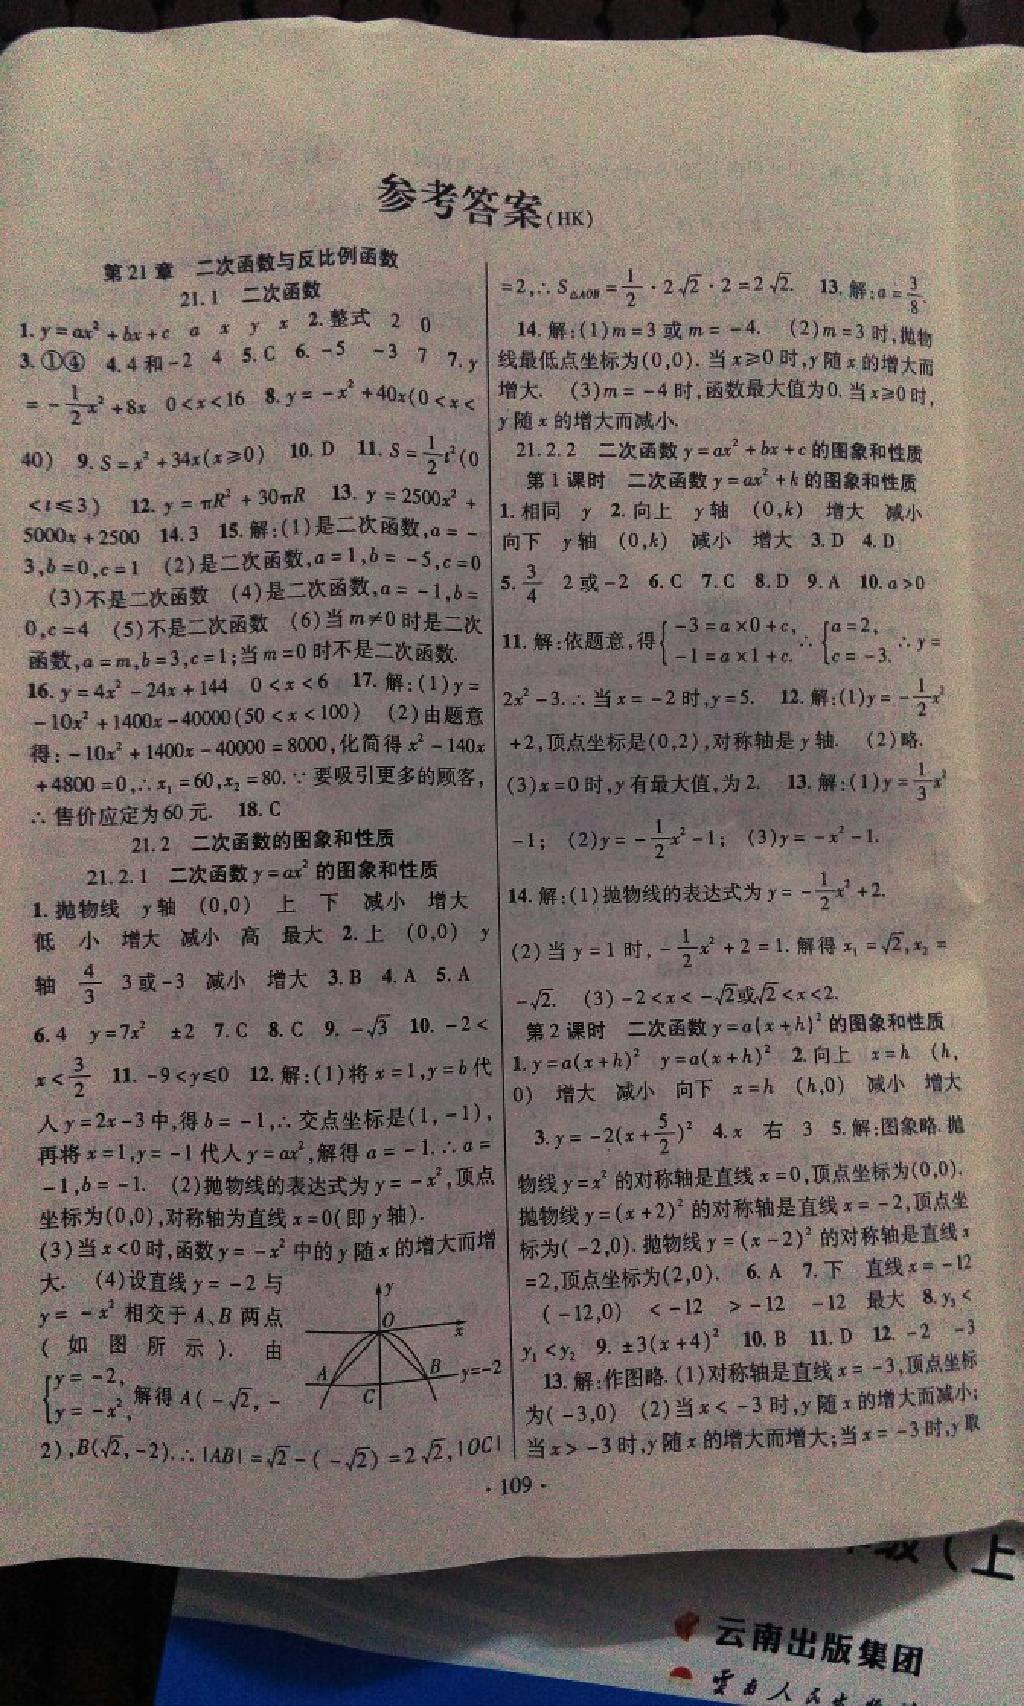 参考答案(HK)
第21章 二次函数与反比例函数
21.1 二次函数
1. y=ax²+bx+c a x y x 2. 整式 2 0
3. ①④ 4. 4和-2 4 5. C 6. -5 -3 7 7. y
=-1/2x²+8x 0<x<16 8. y=-x²+40x(0<x<
40) 9. S=x²+34x(x≥0) 10. D 11. S=1/2t²(0
<t≤3) 12. y=πR²+30πR 13. y=2500x²+
5000x+2500 14. 3 15. 解:(1)是二次函数,a=-
3,b=0,c=1 (2)是二次函数,a=1,b=-5,c=0
(3)不是二次函数 (4)是二次函数,a=-1,b=
0,c=4 (5)不是二次函数 (6)当m≠0时是二次
函数,a=m,b=3,c=1;当m=0时不是二次函数.
16. y=4x²-24x+144 0<x<6 17. 解:(1)y=
-10x²+1400x-40000(50<x<100) (2)由题意
得:-10x²+1400x-40000=8000,化简得x²-140x
+4800=0,∴x₁=60,x₂=80.∵要吸引更多的顾客,
∴售价应定为60元. 18. C
21.2 二次函数的图象和性质
21.2.1 二次函数y=ax²的图象和性质
1. 抛物线 y轴 (0,0) 上 下 减小 增大
低 小 增大 减小 高 最大 2. 上 (0,0) y
轴 4/3 3或-3 减小 增大 3. B 4. A 5. A
6. 4 y=7x² ±2 7. C 8. C 9. -√3 10. -2<
x<3/2 11. -9<y≤0 12. 解:(1)将x=1,y=b代
入y=2x-3中,得b=-1,∴交点坐标是(1,-1),
再将x=1,y=-1代入y=ax²,解得a=-1.∴a=
-1,b=-1. (2)抛物线的表达式为y=-x²,顶点
坐标为(0,0),对称轴为直线x=0(即y轴).
(3)当x<0时,函数y=-x²中的y随x的增大而增
大. (4)设直线y=-2与
y=-x²相交于A、B两点
(如图所示). 由
{y=-2,
y=-x², 解得A(-√2,-
y
O
x
A
B
y=-2
C
2),B(√2,-2).∴|AB|=√2-(-√2)=2√2,|OC|
=2,∴S△AOB=1/2·2√2·2=2√2. 13. 解:a=3/8.
14. 解:(1)m=3或m=-4. (2)m=3时,抛物
线最低点坐标为(0,0). 当x≥0时,y随x的增大而
增大. (3)m=-4时,函数最大值为0. 当x≥0时,
y随x的增大而减小.
21.2.2 二次函数y=ax²+bx+c的图象和性质
第1课时 二次函数y=ax²+k的图象和性质
1. 相同 y 2. 向上 y轴 (0,k) 增大 减小
向下 y轴 (0,k) 减小 增大 3. D 4. D
5. 3/4 2或-2 6. C 7. C 8. D 9. A 10. a>0
11. 解:依题意,得{-3=a×0+c, -1=a×1+c. ∴{a=2, c=-3. ∴y=
2x²-3.∴当x=-2时,y=5. 12. 解:(1)y=-1/2x²
+2,顶点坐标是(0,2),对称轴是y轴. (2)略.
(3)x=0时,y有最大值,为2. 13. 解:(1)y=1/3x²
-1; (2)y=-1/2x²-1; (3)y=-x²-1.
14. 解:(1)抛物线的表达式为y=-1/2x²+2.
(2)当y=1时,-1/2x²+2=1. 解得x₁=√2,x₂=
-√2. (3)-2<x<-√2或√2<x<2.
第2课时 二次函数y=a(x+h)²的图象和性质
1. y=a(x+h)² y=a(x+h)² 2. 向上 x=h (h,
0) 增大 减小 向下 x=h (h,0) 减小 增大
3. y=-2(x+5/2)² 4. x 右 3 5. 解:图象略. 抛
物线y=x²的对称轴是直线x=0,顶点坐标为(0,0).
抛物线y=(x+2)²的对称轴是直线x=-2,顶点坐
标为(-2,0). 抛物线y=(x-2)²的对称轴是直线x
=2,顶点坐标为(2,0). 6. A 7. 下 直线x=-12
(-12,0) <-12 >-12 -12 最大 8. y₃<
y₁<y₂ 9. ±3(x+4)² 10. B 11. D 12. -2 -3
13. 解:作图略. (1)对称轴是直线x=-3,顶点坐标
为(-3,0) (2)当x<-3时,y随x的增大而减小;
当x>-3时,y随x的增大而增大;当x=-3时,y取
·109·
级(上
云南出版集团
云南人民出版